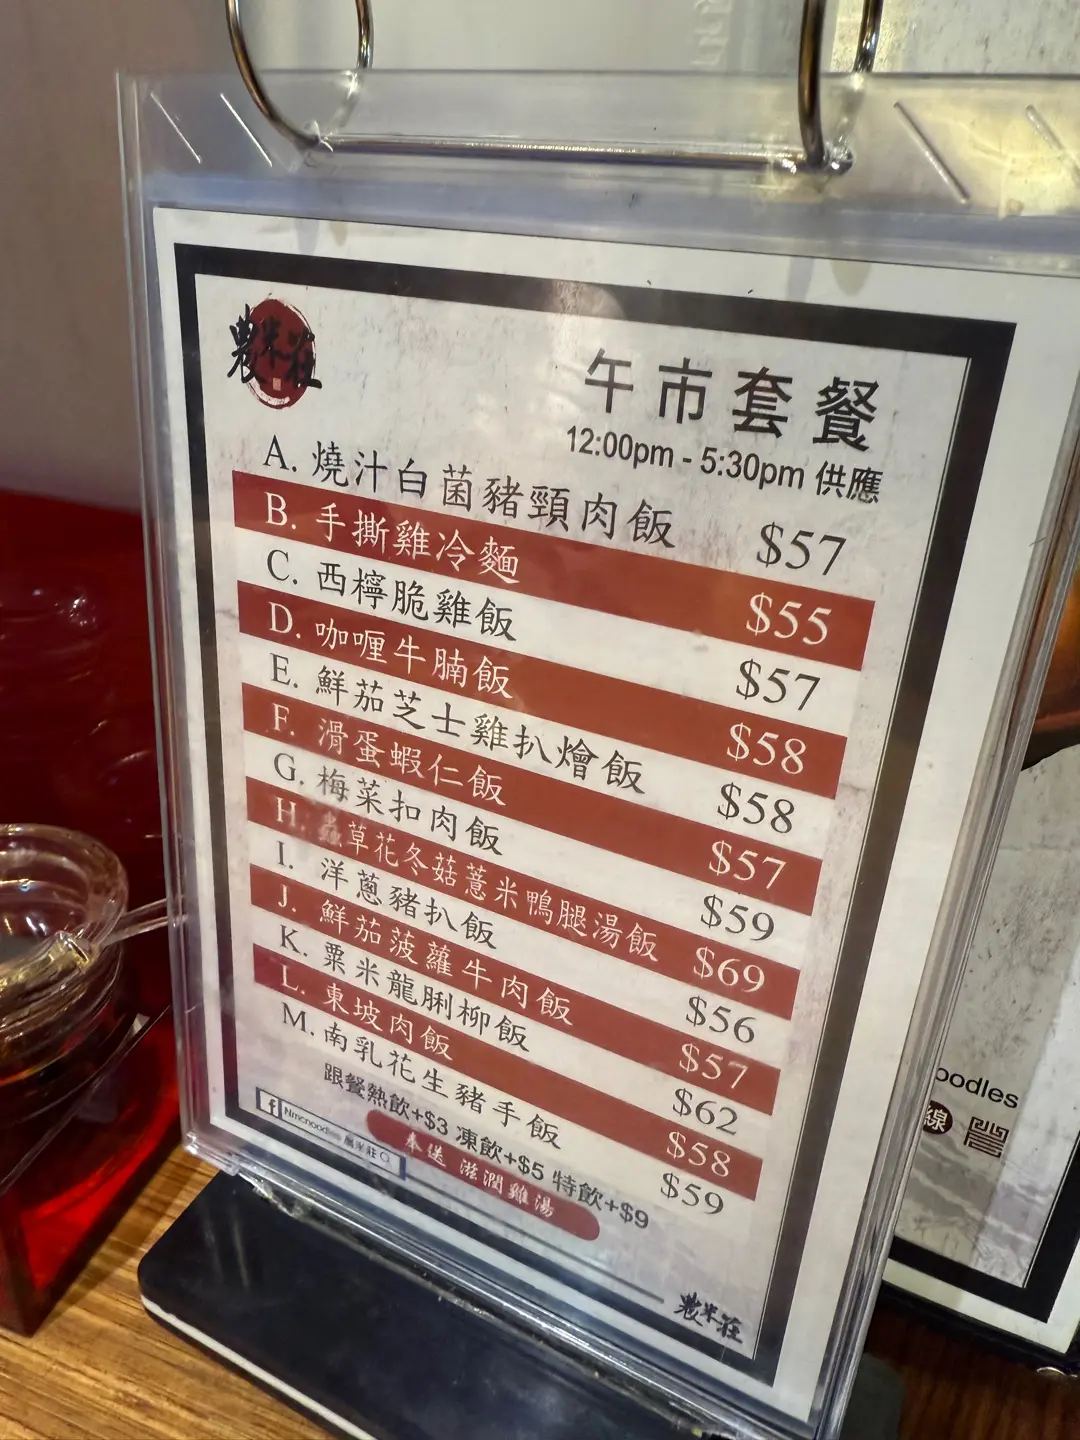 農米莊
午市套餐
12:00pm - 5:30pm 供應
A. 燒汁白菌豬頸肉飯 $57
B. 手撕雞冷麵 $55
C. 西檸脆雞飯 $57
D. 咖喱牛腩飯 $58
E. 鮮茄芝士雞扒燴飯 $58
F. 滑蛋蝦仁飯 $57
G. 梅菜扣肉飯 $59
H. 蟲草花冬菇薏米鴨腿湯飯 $69
I. 洋蔥豬扒飯 $56
J. 鮮茄菠蘿牛肉飯 $57
K. 粟米龍脷柳飯 $62
L. 東坡肉飯 $58
M. 南乳花生豬手飯 $59
跟餐熱飲+$3 凍飲+$5 特飲+$9
奉送 滋潤雞湯
f Nmcnoodles 農米莊
農米莊
oodles
線